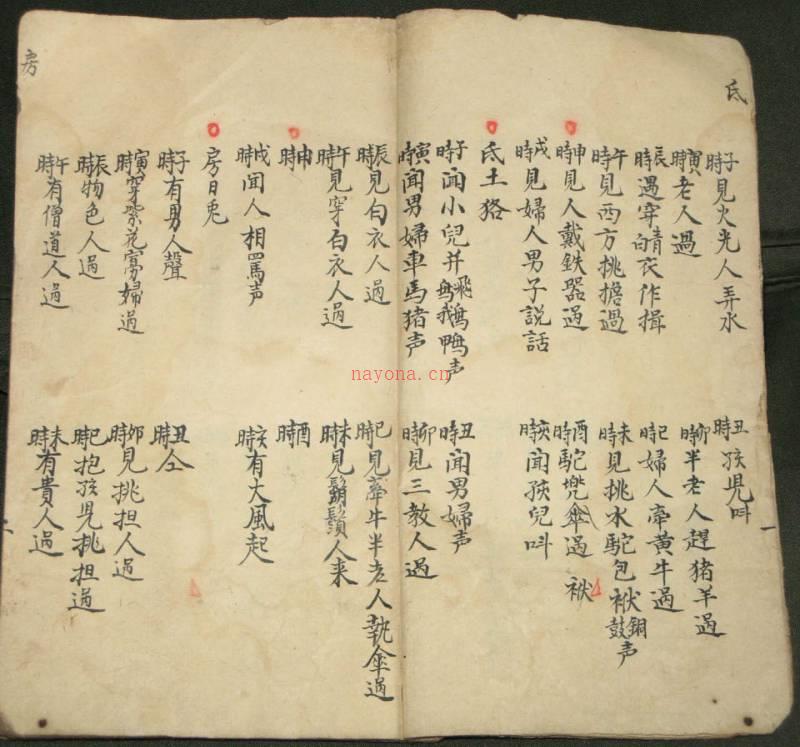 氐
子時見火光人弄水
丑時孩児呌
寅時老人過
卯時半老人趕猪羊過
辰時遇穿皂青衣作揖
巳時婦人牽黄牛過
午時見西方挑擔過
未時見挑水駝包袱銅鼓声
申時見人戴鉄器過
酉時駝兠傘過
袱
戌時見婦人男子説話
亥時聞孩兒呌
氐土狢
子時聞小兒并飛鵝鴨声
丑時聞男婦声
寅時聞男婦車馬猪声
卯時見三教人過
辰時見白衣人過
巳時見牽牛半老人執傘過
午時見穿白衣人過
未時見鬍鬚人来
申時
酉時
戌時聞人相罵声
亥時有大風起
房日兎
子時有男人聲
丑時仝
寅時穿紫花寡婦過
卯時見挑担人過
辰時物色人過
巳時抱孩児挑担過
午時有僧道人過
未時有貴人過
房
nayona.cn